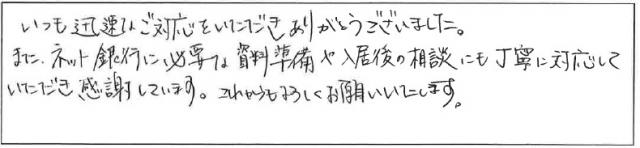 いつも迅速なご対応をいただきありがとうございました。
また、ネット銀行に必要な資料準備や入居後の相談にも丁寧に対応して
いただき感謝しています。これからもよろしくお願いいたします。